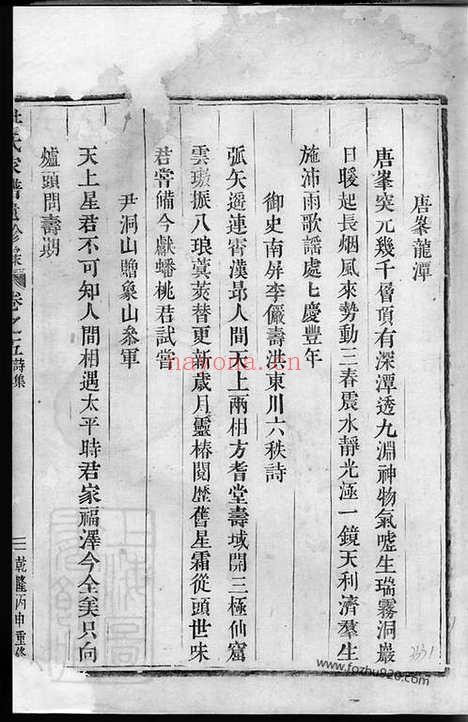 唐峯龍潭
唐峯突元幾千層頂有深潭透九淵神物氣噓生瑞霧洞巖
日暖起長烟風來勢動三春震水靜光極一鏡天利濟羣生
施沛雨歌謡處七慶豐年
御史南屏李儼壽洪東川六秩詩
弧矢遥連霄漢昻人間天上兩相方耆堂壽域開三極仙窟
雲璈振八琅蓂莢替更新歲月靈椿閱歷舊星霜從頭世味
君嘗備今獻蟠桃君試嘗
尹洞山贈象山叅軍
天上星君不可知人間相遇太平時君家福澤今全美只向
爐頭問壽期
氏家譜
卷之五詩集
三
乾隆丙申重修
nayona.cn
2331
www.fozhu920.com